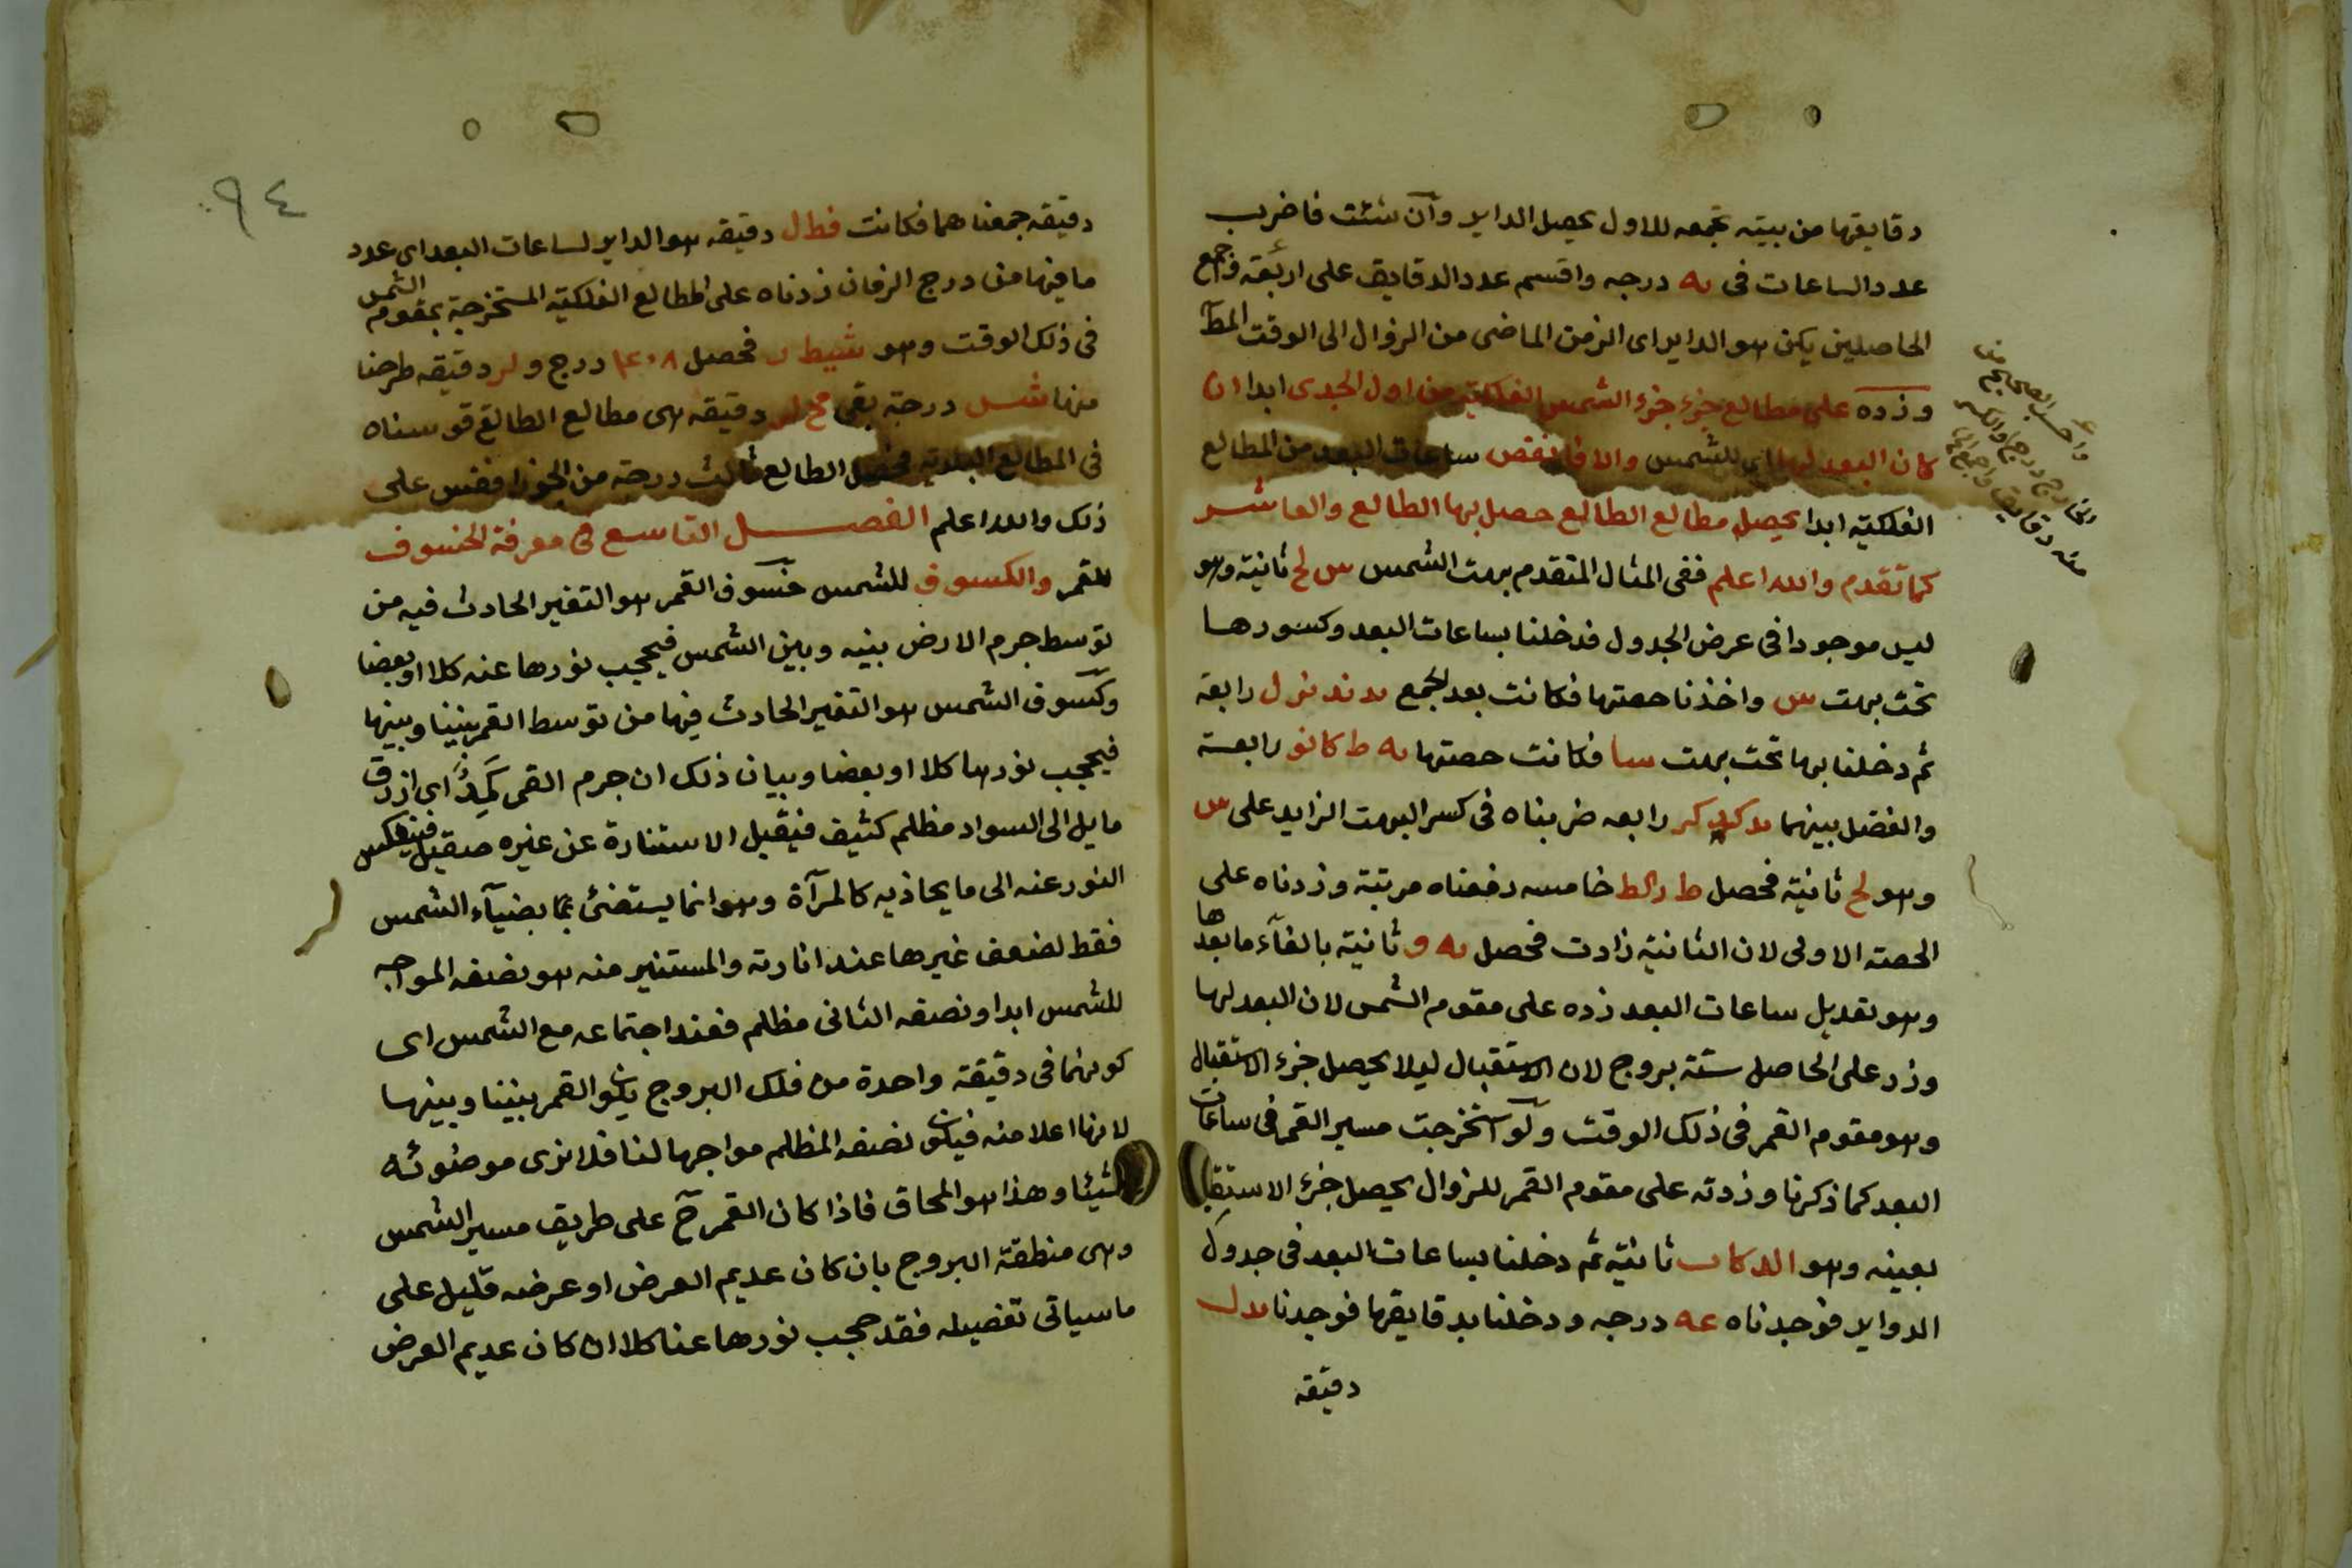 دقايقها من بيته تجمعه للاول يحصل الداير وان شئت فاضرب
عدد الساعات فى يه درجه واقسم عدد الدقايق على اربعة واجمع
الحاصلين يكن هو الداير اى الزمن الماضى من الزوال الى الوقت المط
وزده على مطالع جزء جزء الشمس الفلكية من اول الجدى ابدا ان
كان البعد لها اى للشمس والا فانقص ساعات البعد من المطالع
الفلكيه ابدا يحصل مطالع الطالع حصل بها الطالع والعاشر
كما تقدم والله اعلم ففى المثال المتقدم بهت الشمس س لح ثانية وهو
ليس موجودا فى عرض الجدول فدخلنا بساعات البعد وكسورها
تحت بهت س واخذنا حصتها فكانت بعد الجمع رابعة
ثم دخلنا بها تحت بهت سا فكانت حصتها يه ط كا نو رابعة
والفضل بينهما رابعه ضربناه فى كسر البهت الزايد على س
وهو لح ثانية فحصل خامسه رفعناه مرتبة وزدناه على
الحصة الاولى لان الثانية زادت فحصل يه و ثانية بالغآء ما بعدها
وهو تعديل ساعات البعد زده على مقوم الشمس لان البعد لها
وزد على الحاصل ستة بروج لان الاستقبال ليلا يحصل جزء الاستقبال
وهو مقوم القمر فى ذلك الوقت ولو استخرجت مسير القمر فى ساعات
البعد كما ذكرنا وزدته على مقوم القمر للزوال يحصل جزء الاستقبال
بعينه وهو ثانية ثم دخلنا بساعات البعد فى جدول
الدواير فوجدناه عه درجه ودخلنا بدقايقها فوجدنا يد ل
دقيقه
دقيقه جمعناهما فكانت فط ل دقيقه هو الداير لساعات البعد اى عدد
ما فيها من درج الزمان زدناه على المطالع الفلكية المستخرجة بمقوم الشمس
فى ذلك الوقت وهو شيط فحصل ٤٠٨ درج و لر دقيقه طرحنا
منها شس درجة بقى مح لر دقيقه هى مطالع الطالع قوسناه
فى المطالع البلدية فحصل الطالع ثالث درجة من الجوزا فقس على
ذلك والله اعلم الفصل التاسع فى معرفة الخسوف
للقمر والكسوف للشمس خسوف القمر هو التغير الحادث فيه من
توسط جرم الارض بينه وبين الشمس فيحجب نورها عنه كلا او بعضا
وكسوف الشمس هو التغير الحادث فيها من توسط القمر بيننا وبينها
فيحجب نورها كلا او بعضا وبيان ذلك ان جرم القمر كمد اى ازرق
مايل الى السواد مظلم كثيف فيقبل الاستنارة عن غيره صقيل فينعكس
النور عنه الى ما يحاذيه كالمرآة وهو انما يستضئ بضيآء الشمس
فقط لضعف غيرها عند انارته والمستنير منه هو نصفه المواجه
للشمس ابدا ونصفه الثانى مظلم فعند اجتماعه مع الشمس اى
كونهما فى دقيقة واحدة من فلك البروج يكون القمر بيننا وبينها
لانها اعلا منه فيكون نصفه المظلم مواجها لنا فلا نرى من ضوئه
شيئا وهذا هو المحاق فاذا كان القمر ح على طريق مسير الشمس
وهى منطقة البروج بان كان عديم العرض او عرضه قليل على
ما سياتى تفصيله فقد حجب نورها عنا كلا ان كان عديم العرض
٩٤